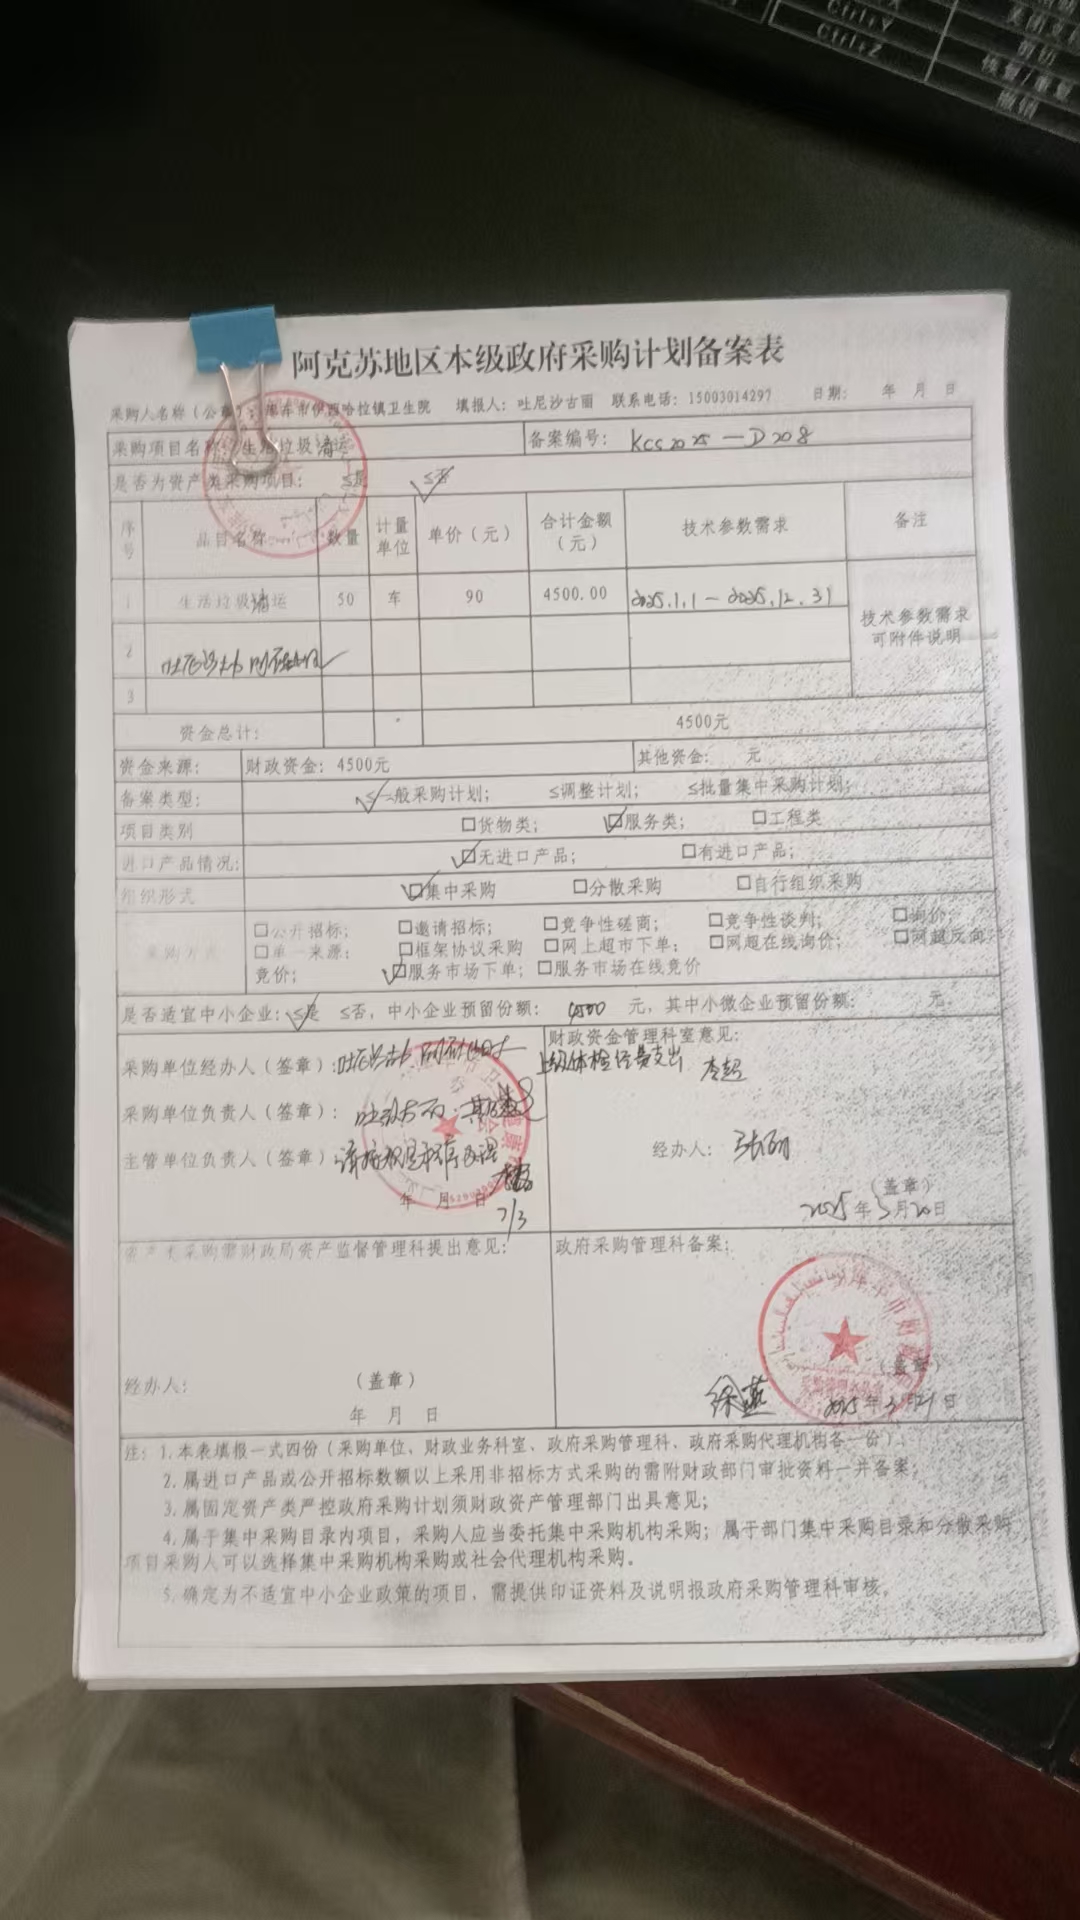 Ctrl+Y
Ctrl+Z
剪切
恢复/重复
撤销
阿克苏地区本级政府采购计划备案表
采购人名称(公章):库车市伊西哈拉镇卫生院 填报人:吐尼沙古丽 联系电话:15003014297 日期: 年 月 日
采购项目名称:生活垃圾清运 备案编号: KCS2025-D208
是否为资产类采购项目: ≤是 ≤否
序号 品目名称 数量 计量单位 单价(元) 合计金额(元) 技术参数需求 备注
1 生活垃圾清运 50 车 90 4500.00 2025.1.1-2025.12.31 技术参数需求可附件说明
2
3
资金总计: 4500元
资金来源: 财政资金:4500元 其他资金: 元
备案类型: ≤一般采购计划; ≤调整计划; ≤批量集中采购计划;
项目类别 □货物类; □服务类; □工程类
进口产品情况: □无进口产品; □有进口产品;
组织形式 □集中采购 □分散采购 □自行组织采购
采购方式 □公开招标; □邀请招标; □竞争性磋商; □竞争性谈判; □询价;
□单一来源; □框架协议采购 □网上超市下单; □网超在线询价; □网超反向
竞价; □服务市场下单; □服务市场在线竞价
是否适宜中小企业: ≤是 ≤否,中小企业预留份额: 4500 元,其中小微企业预留份额: 元
采购单位经办人(签章):
采购单位负责人(签章):
主管单位负责人(签章): 请按规定程序办理
年 月 日
7/3
财政资金管理科室意见:
上级体检经费支出 李超
经办人:
(盖章)
2025年3月20日
资产类采购需财政局资产监督管理科提出意见:
经办人: (盖章)
年 月 日
政府采购管理科备案:
徐燕
(盖章)
2025年3月21日
注:1.本表填报一式四份(采购单位、财政业务科室、政府采购管理科、政府采购代理机构各一份);
2.属进口产品或公开招标数额以上采用非招标方式采购的需附财政部门审批资料一并备案;
3.属固定资产类严控政府采购计划须财政资产管理部门出具意见;
4.属于集中采购目录内项目,采购人应当委托集中采购机构采购;属于部门集中采购目录和分散采购
项目采购人可以选择集中采购机构采购或社会代理机构采购。
5.确定为不适宜中小企业政策的项目,需提供印证资料及说明报政府采购管理科审核。